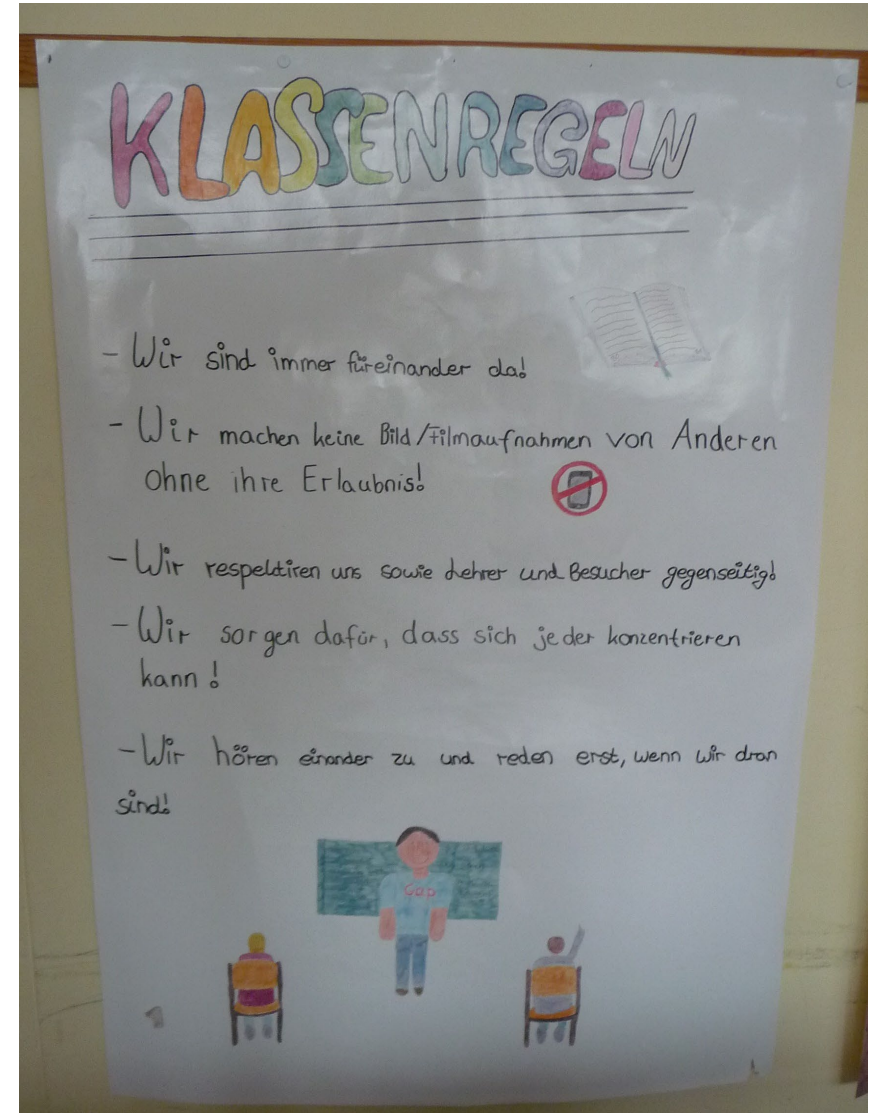 KLASSENREGELN
- Wir sind immer füreinander da!
- Wir machen keine Bild/Filmaufnahmen von Anderen
ohne ihre Erlaubnis!
- Wir respektiren uns sowie Lehrer und Besucher gegenseitig!
- Wir sorgen dafür, dass sich jeder konzentrieren
kann!
- Wir hören einander zu und reden erst, wenn wir dran
sind!
Gap